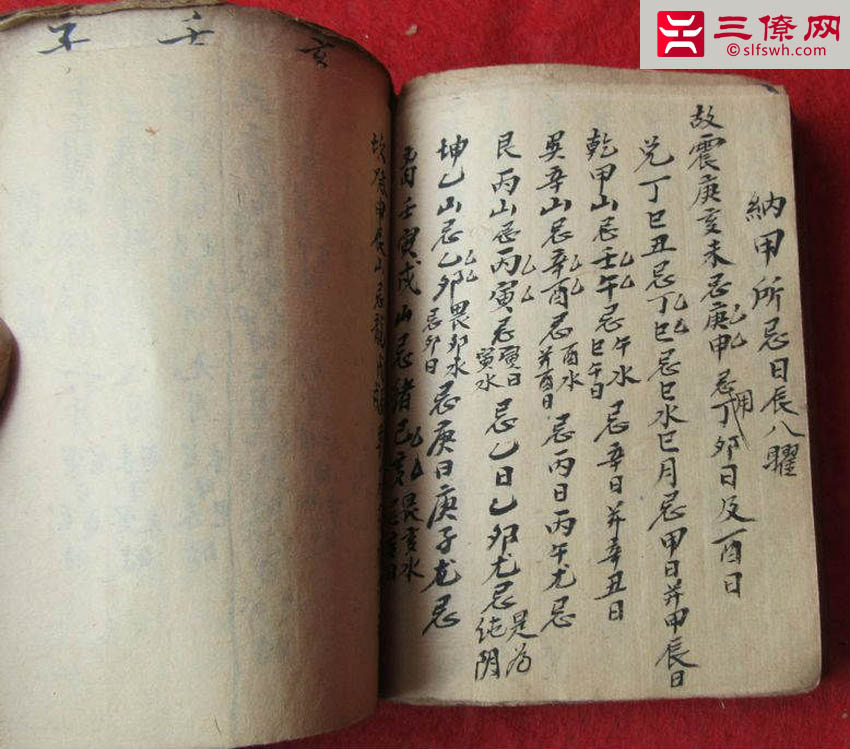 三僚网
©slfswh.com
子 壬 亥
納甲所忌日辰八曜
故震庚亥未忌庚申忌用丁卯日及酉日
兌丁巳丑忌丁巳忌巳水巳月忌甲日并甲辰日
乾甲山忌壬午忌午水巳午日忌辛日并辛丑日
巽辛山忌辛酉忌酉水并酉日忌丙日丙午尤忌
艮丙山忌丙寅忌寅日寅水忌乙日乙卯尤忌是为纯阴
坤乙山忌乙卯畏卯水忌卯日忌庚日庚子尤忌
壬寅戌山忌諸己亥畏亥水
故 山忌